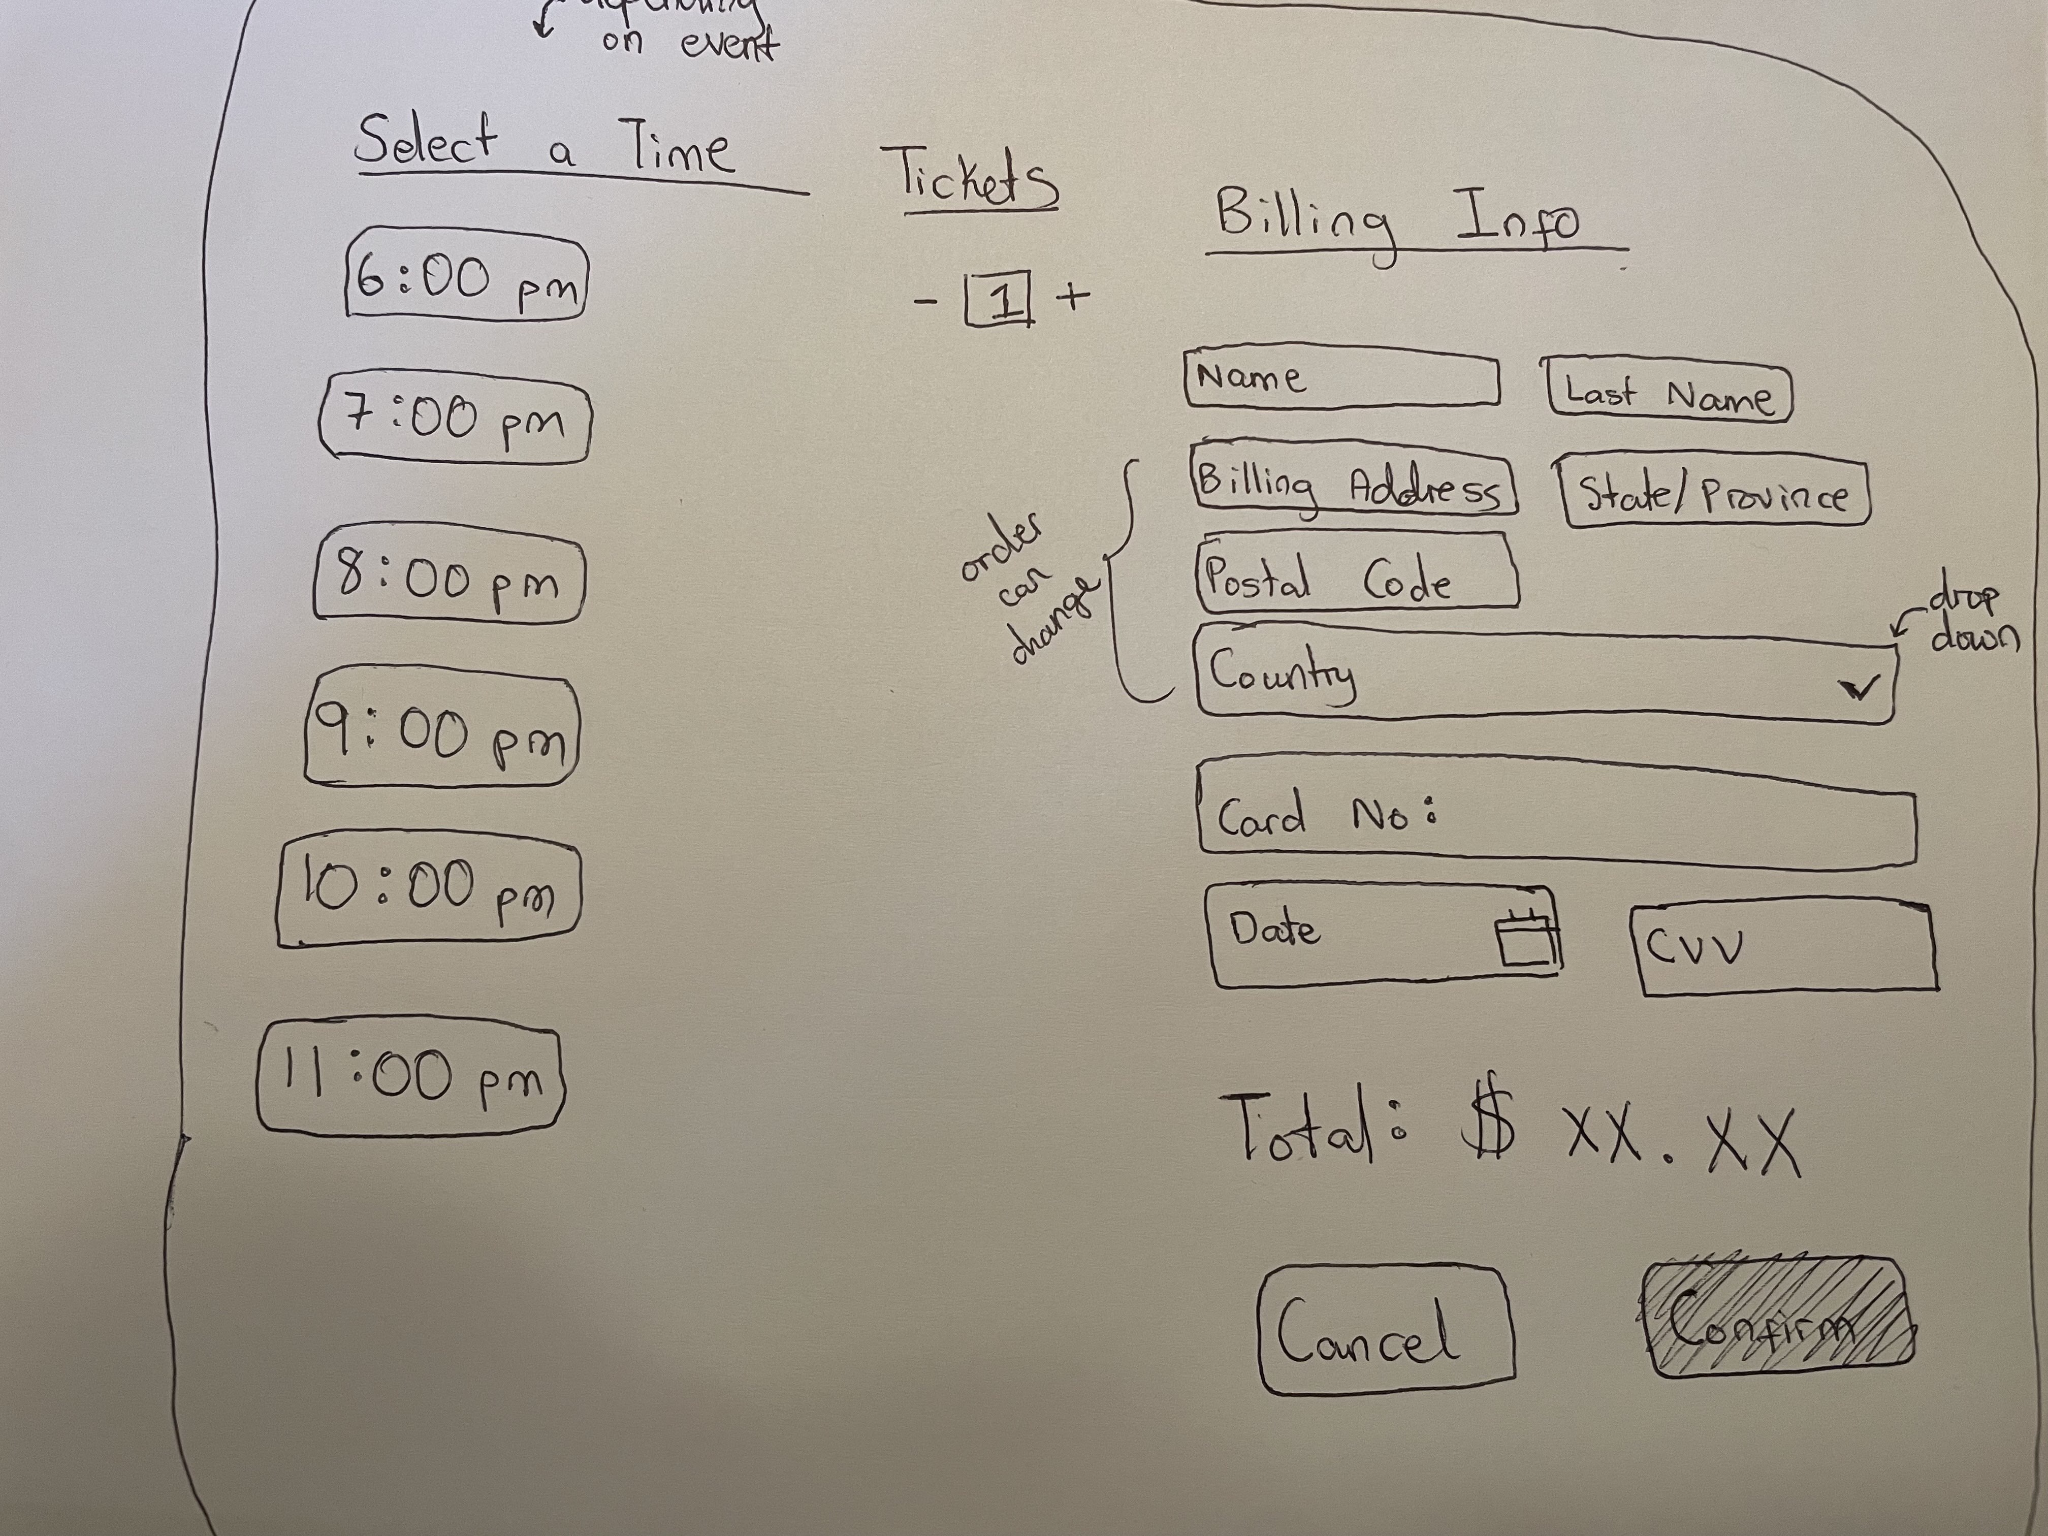 depending
on event
Select a Time
6:00 pm
7:00 pm
8:00 pm
9:00 pm
10:00 pm
11:00 pm
Tickets
- 1 +
Billing Info
Name
Last Name
Billing Address
State/Province
Postal Code
Country
drop
down
order
can
change
Card No:
Date
CVV
Total: $ xx.xx
Cancel
Confirm